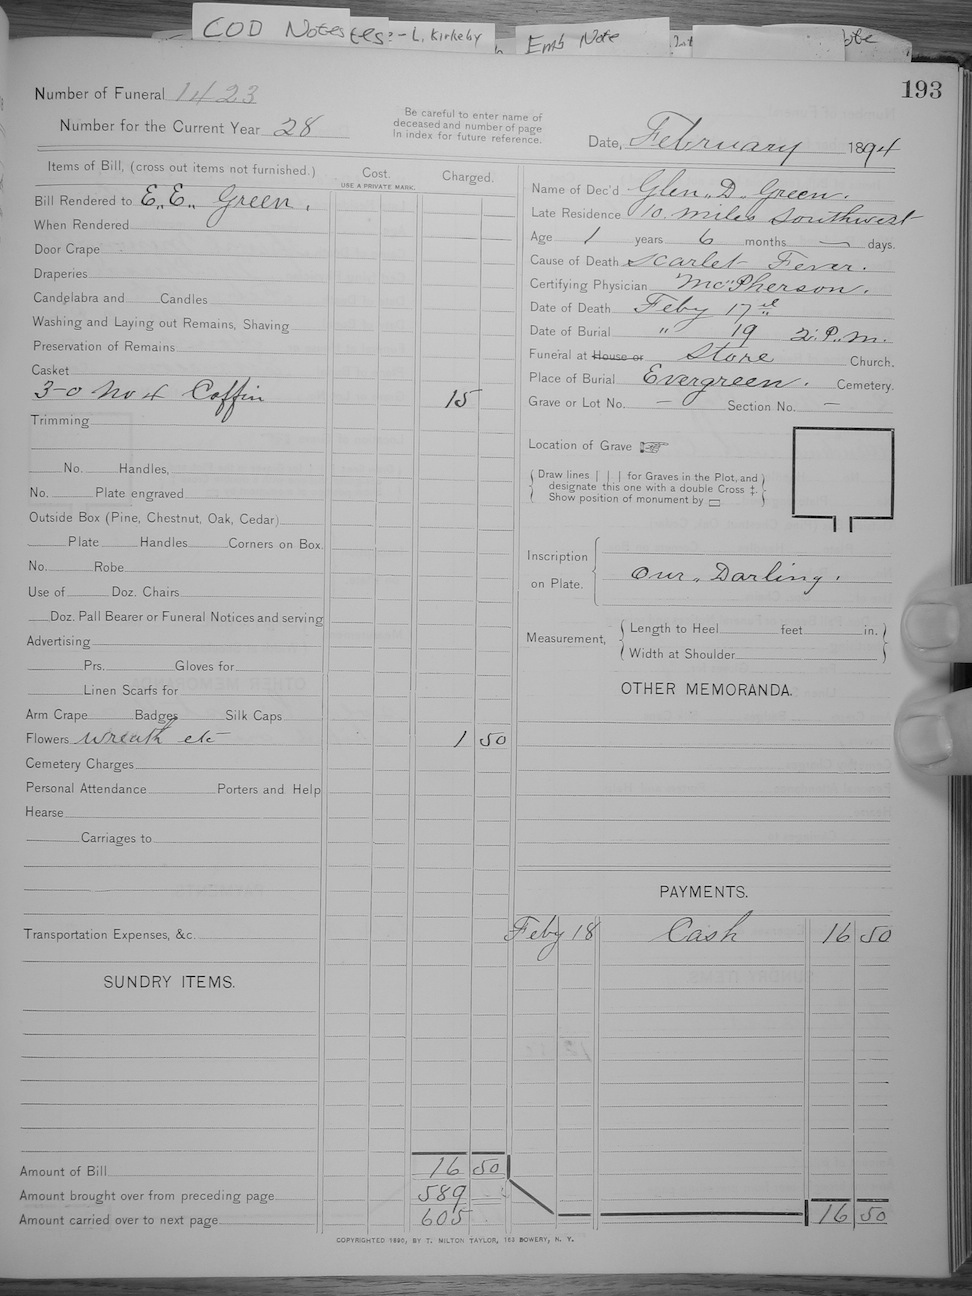 COD Notes
tes:- L. Kirkeby
Emb Note
193
Number of Funeral 1423
Number for the Current Year 28
Be careful to enter name of
deceased and number of page
in index for future reference.
Date, February 1894
Items of Bill, (cross out items not furnished.)
Cost.
USE A PRIVATE MARK.
Charged.
Bill Rendered to E. E. Green.
When Rendered
Door Crape
Draperies
Candelabra and Candles
Washing and Laying out Remains, Shaving
Preservation of Remains
Casket
3-0 No 4 Coffin 15
Trimming
No. Handles,
No. Plate engraved
Outside Box (Pine, Chestnut, Oak, Cedar)
Plate Handles Corners on Box.
No. Robe
Use of Doz. Chairs
Doz. Pall Bearer or Funeral Notices and serving
Advertising
Prs. Gloves for
Linen Scarfs for
Arm Crape Badges Silk Caps
Flowers wreath etc 1 50
Cemetery Charges
Personal Attendance Porters and Help
Hearse
Carriages to
Transportation Expenses, &c.
SUNDRY ITEMS.
Amount of Bill 16 50
Amount brought over from preceding page 589
Amount carried over to next page 605
Name of Dec'd Glen. D. Green.
Late Residence 10. miles Southwest
Age 1 years 6 months — days.
Cause of Death Scarlet Fever.
Certifying Physician McPherson.
Date of Death Feby 17th
Date of Burial " 19 2. P. M.
Funeral at House or Store Church.
Place of Burial Evergreen. Cemetery.
Grave or Lot No. — Section No. —
Location of Grave
Draw lines | | | for Graves in the Plot, and
designate this one with a double Cross ‡.
Show position of monument by ▭
Inscription
on Plate. Our Darling.
Measurement, Length to Heel feet in.
Width at Shoulder
OTHER MEMORANDA.
PAYMENTS.
Feby 18 Cash 16 50
16 50
COPYRIGHTED 1890, BY T. MILTON TAYLOR, 153 BOWERY, N. Y.